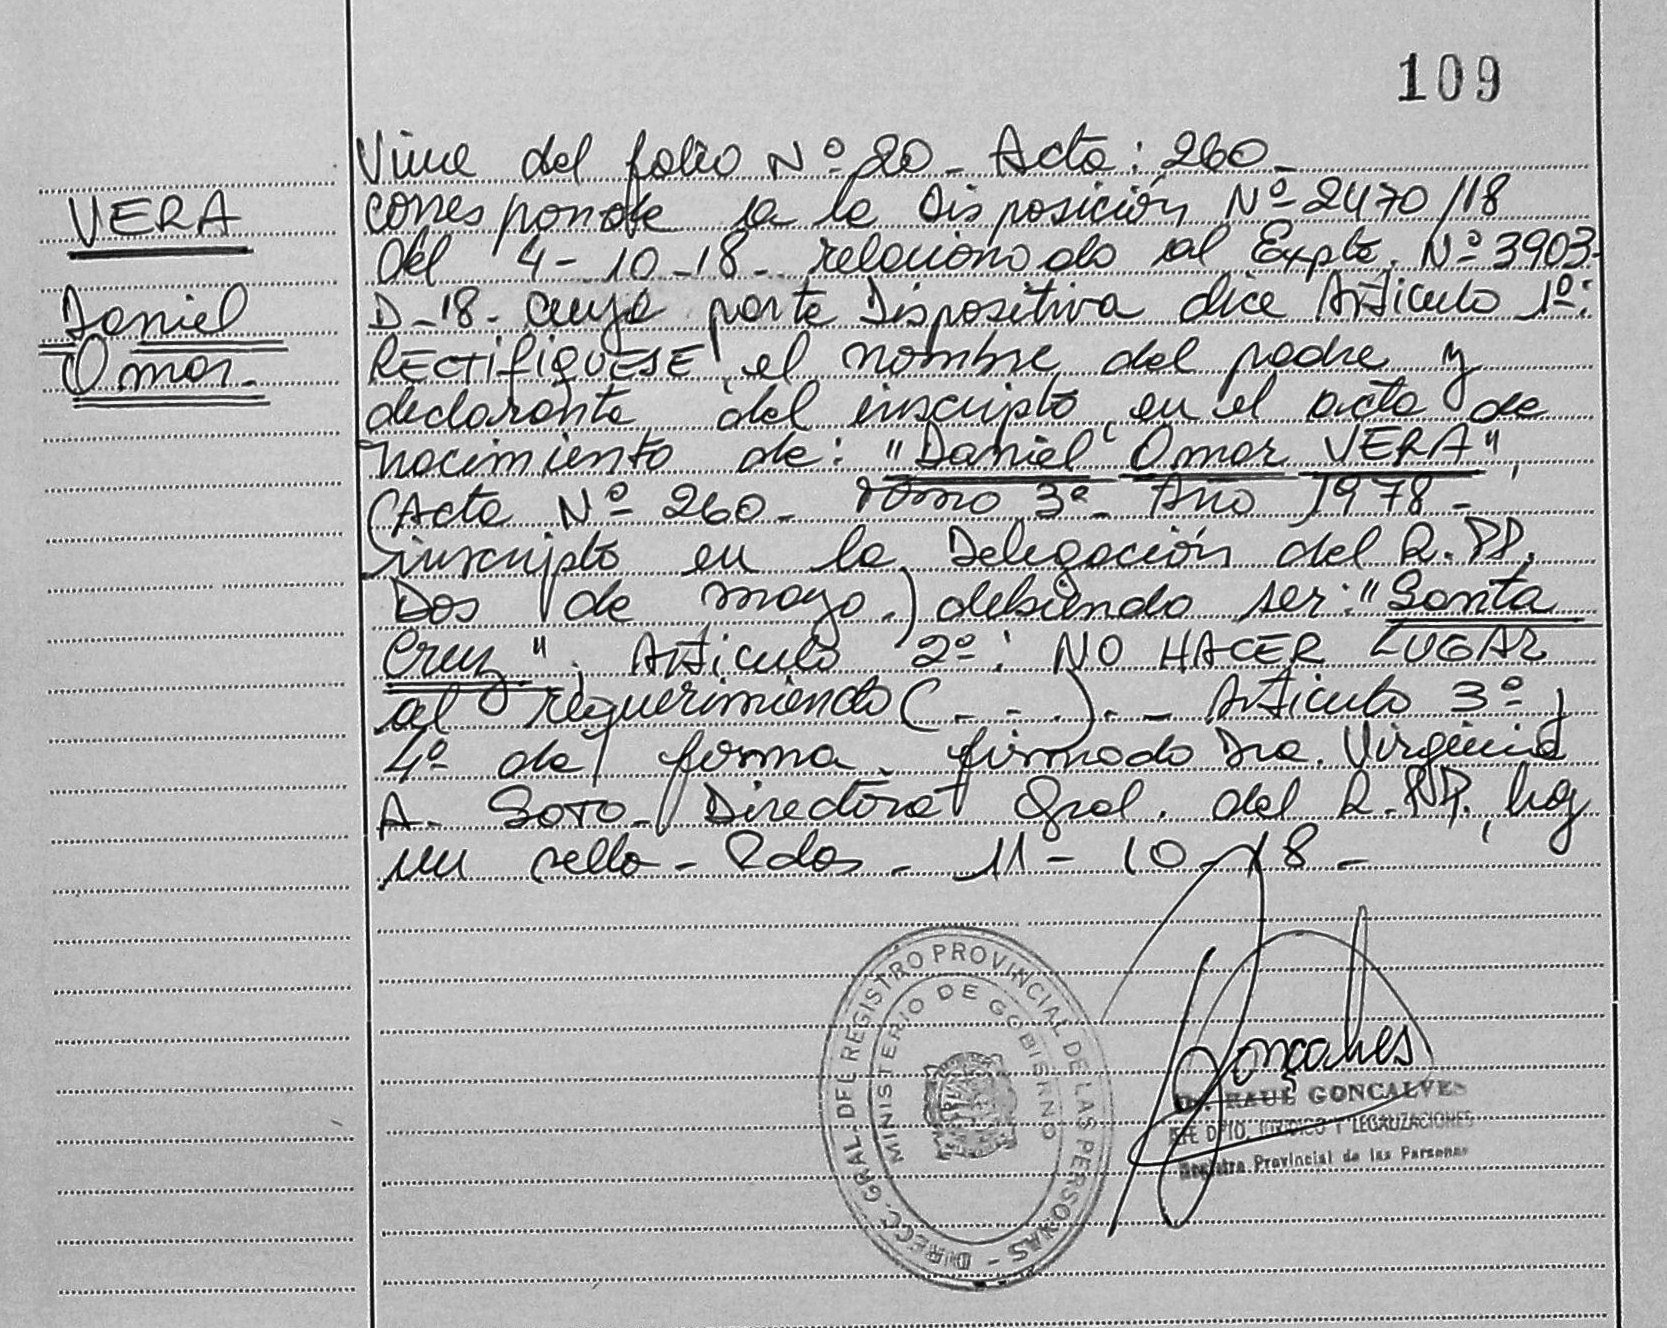 109
VERA
Daniel
Omar.
Viene del folio Nº 20 - Acta: 260 -
corresponde a la Disposición Nº 2470/18
del 4-10-18 - relacionado al Expte. Nº 3903-
D-18 - cuya parte Dispositiva dice Artículo 1º:
RECTIFIQUESE el nombre del padre y
declarante del inscripto en el acta de
nacimiento de: "Daniel Omar VERA",
(Acta Nº 260 - Tomo 3º - Año 1978 -
inscripto en la Delegación del R.PP.
Dos de mayo.) debiendo ser: "Santa
Cruz". Artículo 2º: NO HACER LUGAR
al requerimiento (- - -). - Artículo 3º y
4º de forma. firmado Dra. Virginia
A. SOTO - Directora Gral. del R.PP. hay
un sello - Pdas - 11-10-18 -
DIRECC. GRAL. DEL REGISTRO PROVINCIAL DE LAS PERSONAS -
MINISTERIO DE GOBIERNO
Gonçalves
Dr. RAUL GONCALVES
JEFE DPTO. JURIDICO Y LEGALIZACIONES
Registro Provincial de las Personas